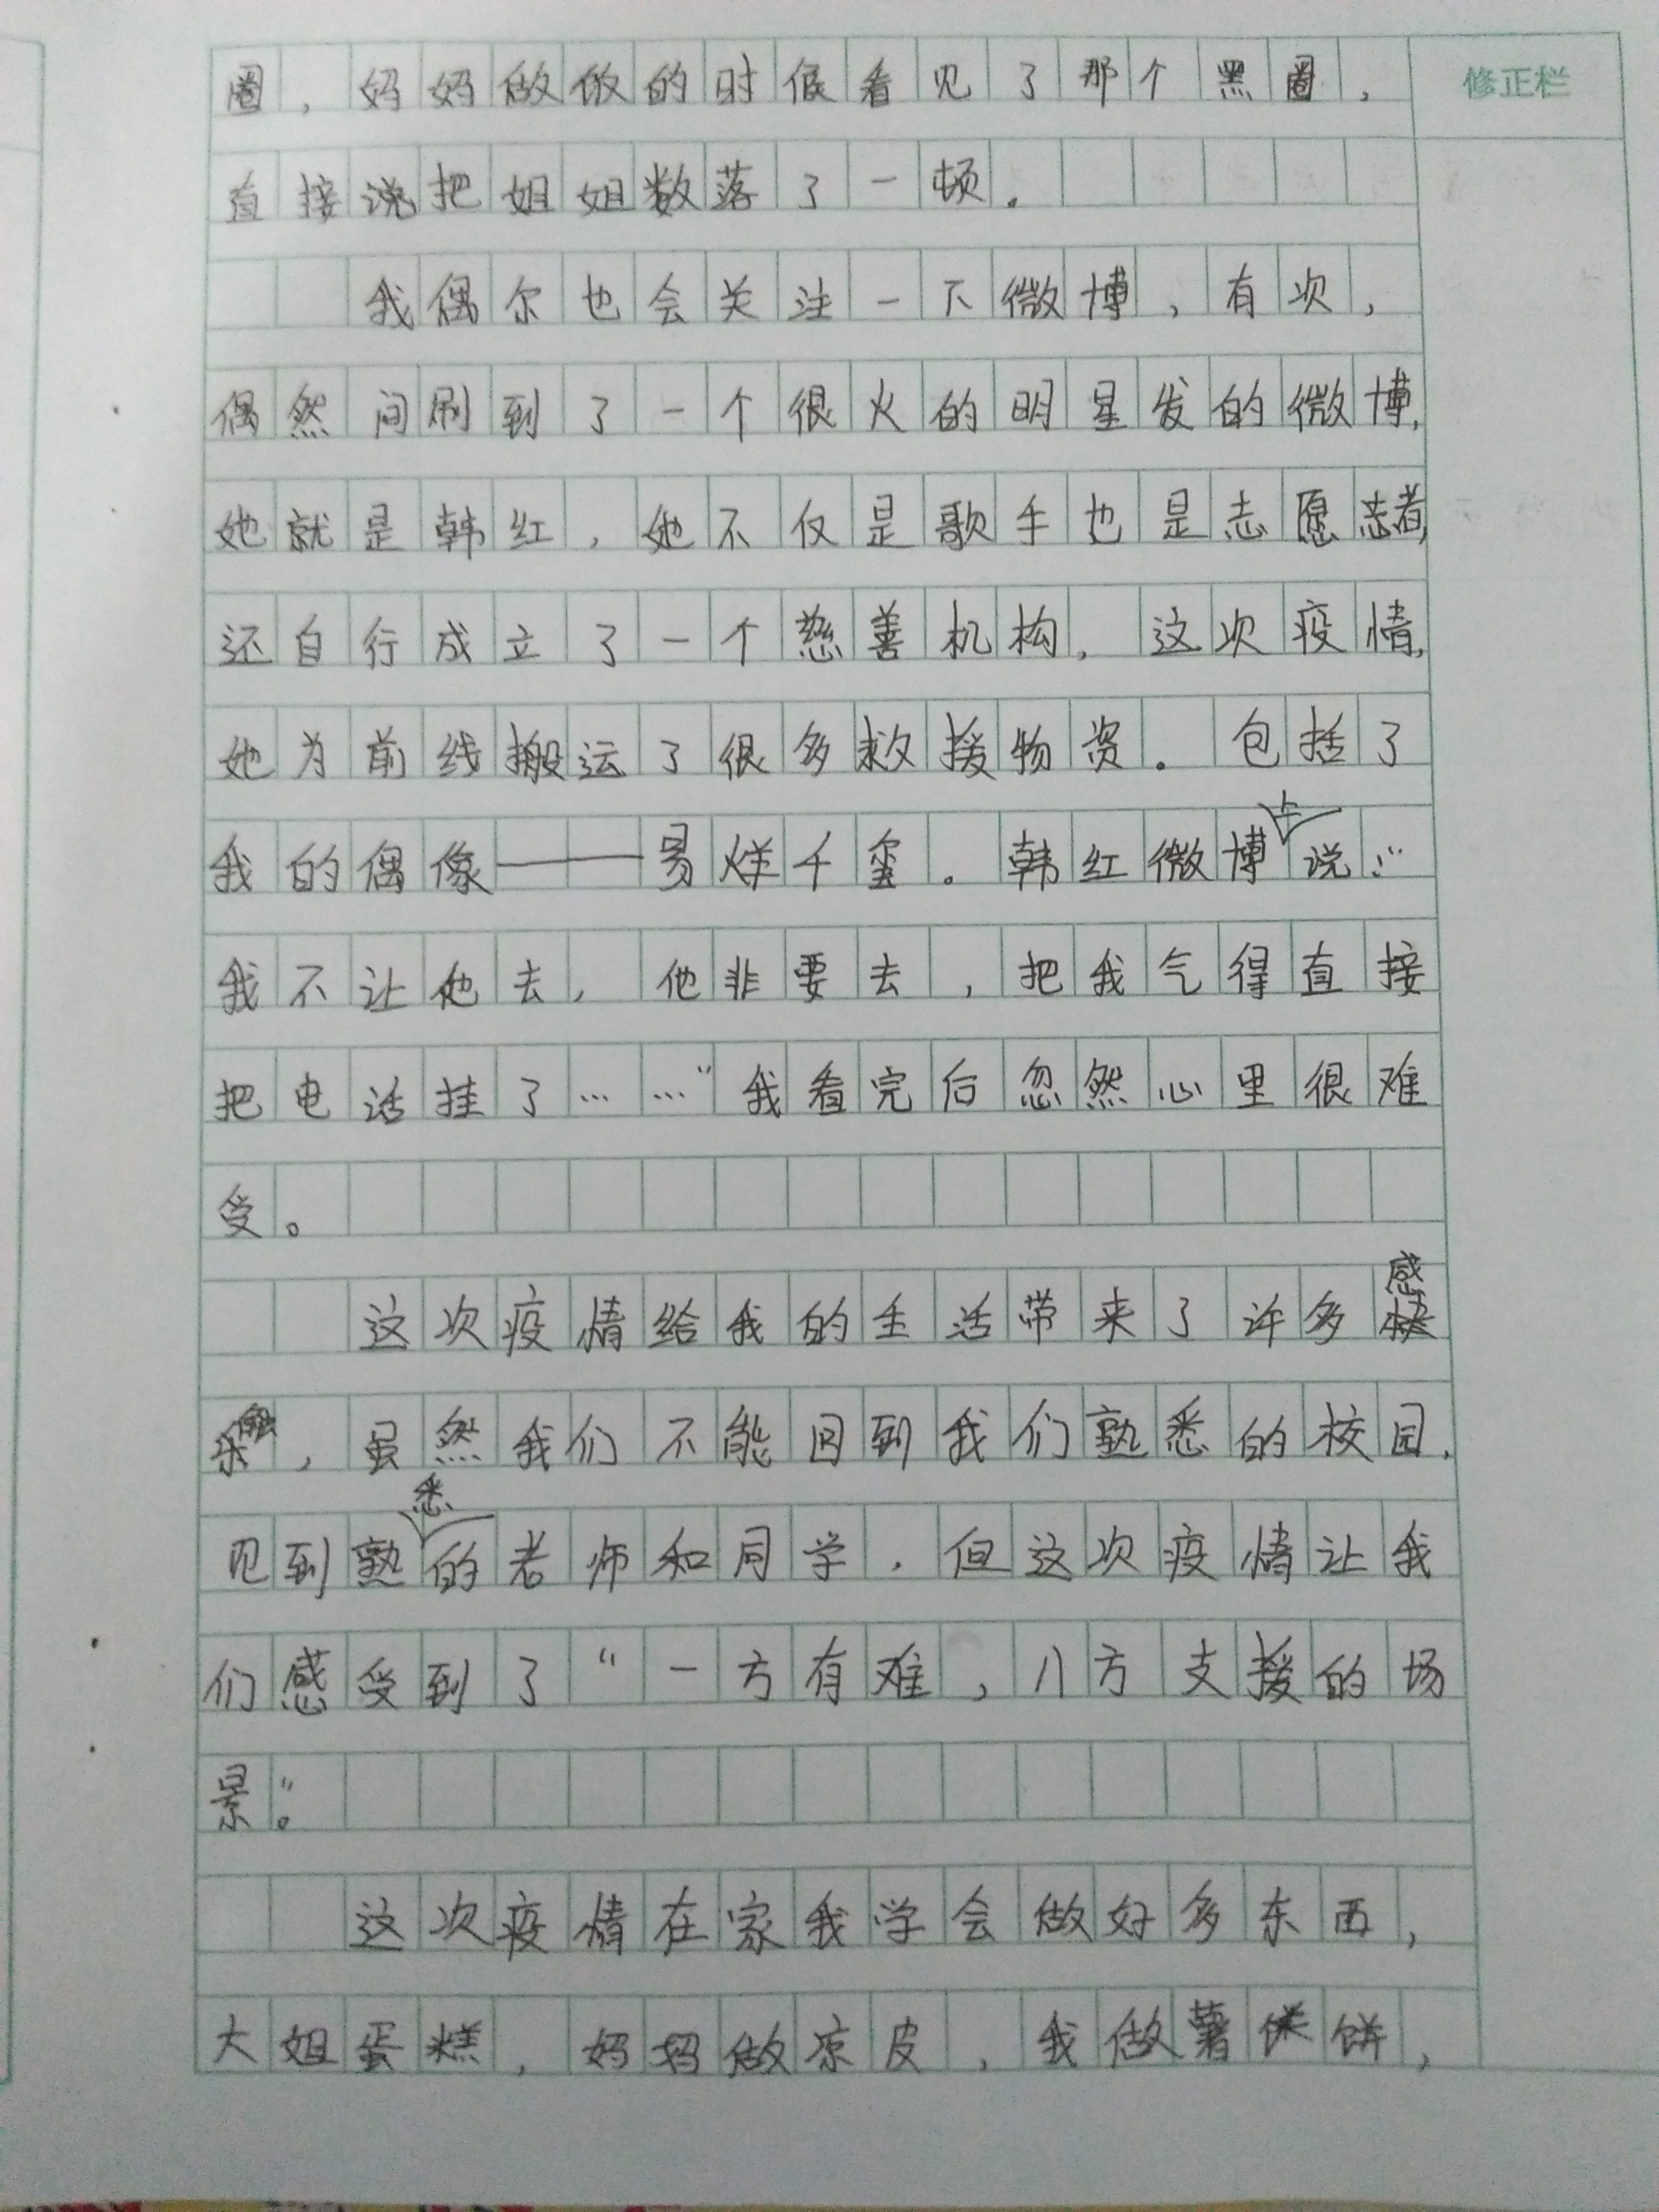 圈，妈妈做做的时候看见了那个黑圈，
修正栏
直接说把姐姐数落了一顿。
我偶尔也会关注一下微博，有次，
偶然间刷到了一个很火的明星发的微博，
她就是韩红，她不仅是歌手也是志愿者，
还自行成立了一个慈善机构，这次疫情，
她为前线搬运了很多救援物资。包括了
我的偶像——易烊千玺。韩红微博上说：“
我不让他去，他非要去，把我气得直接
把电话挂了……”我看完后忽然心里很难
受。
这次疫情给我的生活带来了许多感
触，虽然我们不能回到我们熟悉的校园，
见到熟悉的老师和同学，但这次疫情让我
们感受到了“一方有难，八方支援的场
景。”
这次疫情在家我学会做好多东西，
大姐蛋糕，妈妈做凉皮，我做薯饼，